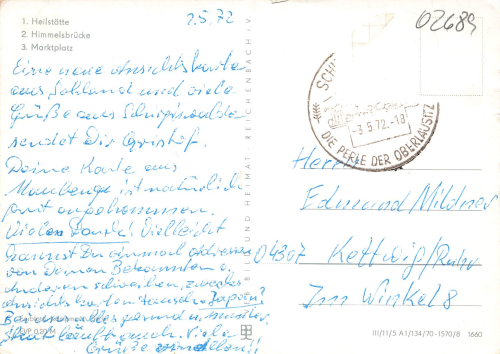 1. Heilstätte
2. Himmelsbrücke
3. Marktplatz
2.5.72
02689
Eine neue Ansichtskarte
aus Sohland und viele
Grüße aus Schirgiswalde
sendet Dir Christof.
Deine Karte aus
Maubeuge ist natürlich
gut angekommen.
Vielen Dank! Vielleicht
kannst Du einmal Adressen
von Deinen Bekannten o.
anderen schreiben, zwecks
Ansichtskarten tausche Japan?
alles gesund u. munter,
auch. Viele
Grüße
BILD UND HEIMAT REICHENBACH I. V.
SCHI
-3.5.72.-18
DIE PERLE DER OBERLAUSITZ
Herrn
Edmund Mildner
04307 Kettwig/Ruhr
Im Winkel 8
EVP 0,20 M
III/11/5 A1/134/70-1570/8 1660